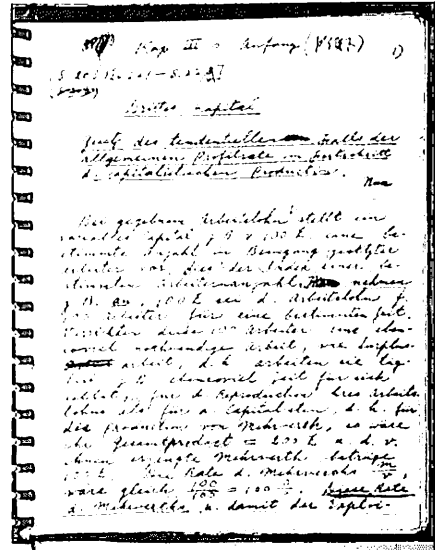 Kap III. Anfang 1)
Drittes Capitel
Gesetz des tendentiellen Falls der
allgemeinen Profitrate im Fortschritt
d. capitalistischen Production.
Bei gegebnem Arbeitslohn stellt ein
variables Capital z. B. v. 100 £. eine be-
stimmte Anzahl in Bewegung gesetzter
Arbeiter vor,
stimmten Arbeiteranzahl. nehmen
z. B. an, 100 £ sei d. Arbeitslohn f.
100 Arbeiter für eine bestimmte Zeit.
Verrichten diese 100 Arbeiter eine eben-
soviel nothwendige Arbeit, wie Surplus-
arbeit, d. h. arbeiten sie täg-
lich z. B. ebensoviel Zeit für sich
selbst, für d. Reproduction ihres Arbeits-
lohns als für d. Capitalisten, d. h. für
die Production von Mehrwerth, so wäre
ihr Gesamtproduct = 200 £ u. d. v.
ihnen erzeugte Mehrwerth betrüge
100 £. Die Rate d. Mehrwerths m/v
wäre gleich 100/100 = 100 %. Diese Rate
d. Mehrwerths u. damit der Exploi-